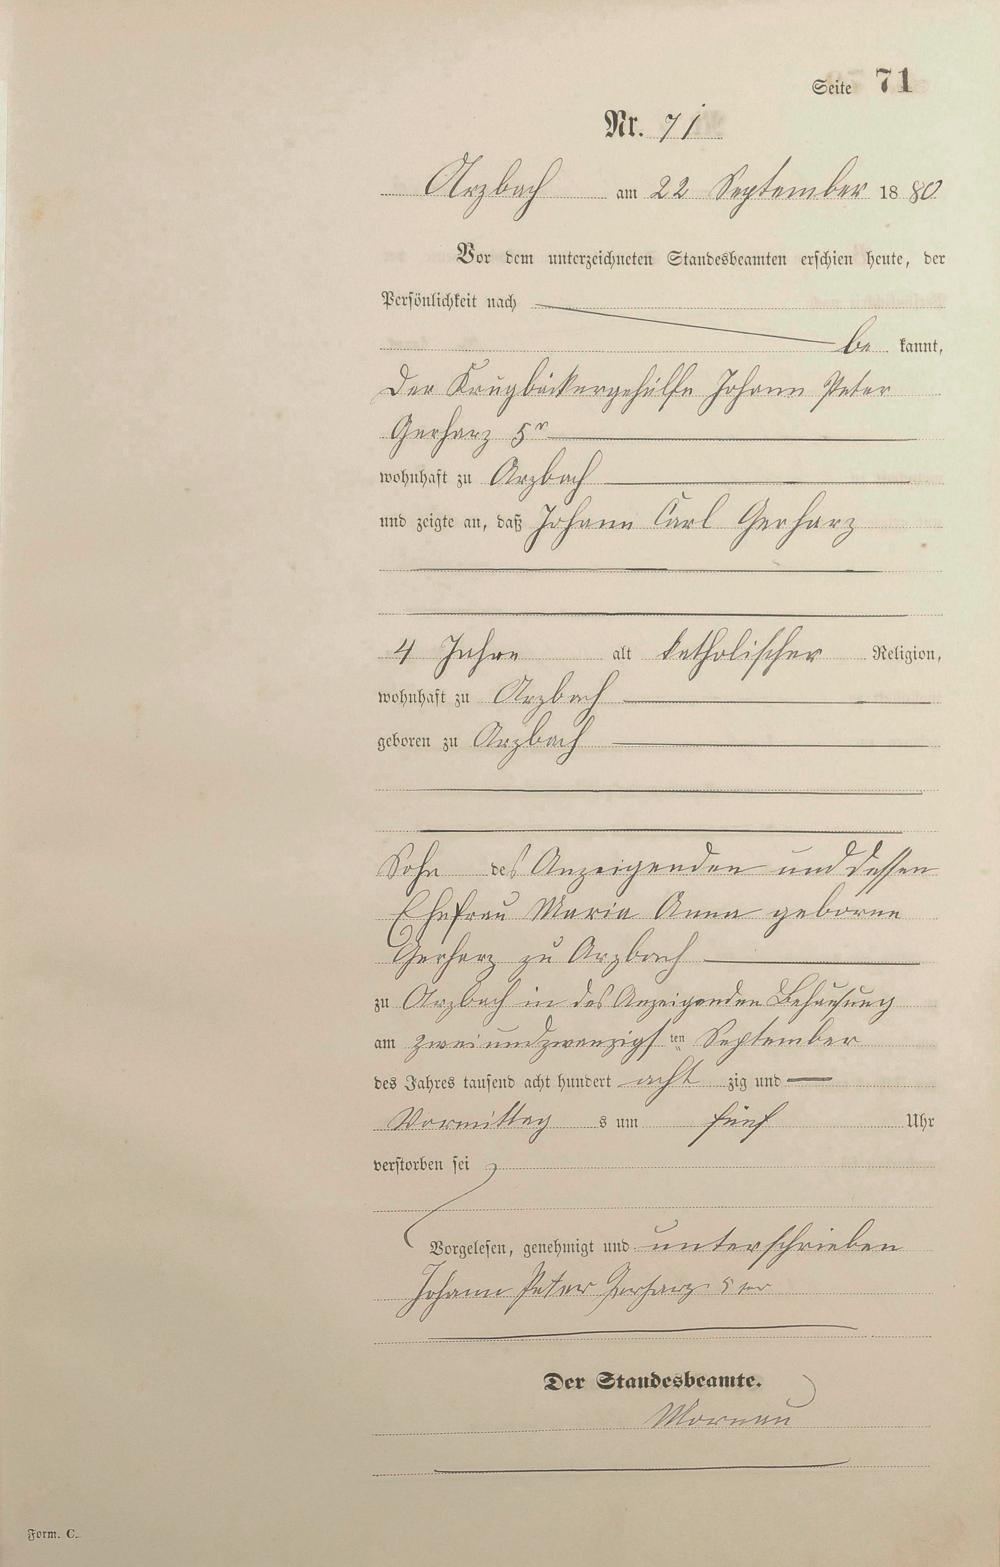 Seite 71
Nr. 71
Arzbach am 22 September 1880
Vor dem unterzeichneten Standesbeamten erschien heute, der
Persönlichkeit nach
be kannt,
der Krugbäckergehülfe Johann Peter
Gerharz 5r
wohnhaft zu Arzbach
und zeigte an, daß Johann Carl Gerharz
4 Jahre alt katholischer Religion,
wohnhaft zu Arzbach
geboren zu Arzbach
Sohn des Anzeigenden und dessen
Ehefrau Maria Anna geborne
Gerharz zu Arzbach
zu Arzbach in des Anzeigenden Behausung
am zweiundzwanzigsten September
des Jahres tausend acht hundert acht zig und
Vormittag s um fünf Uhr
verstorben sei
Vorgelesen, genehmigt und unterschrieben
Johann Peter Gerharz 5ter
Der Standesbeamte.
Form. C.